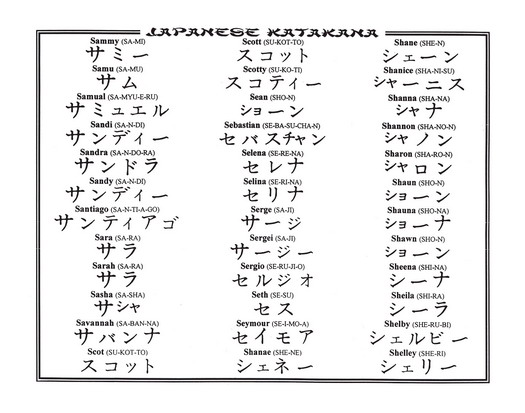 JAPANESE KATAKANA
Sammy (SA-MI)
サミー
Samu (SA-MU)
サム
Samual (SA-MYU-E-RU)
サミュエル
Sandi (SA-N-DI)
サンディー
Sandra (SA-N-DO-RA)
サンドラ
Sandy (SA-N-DI)
サンディー
Santiago (SA-N-TI-A-GO)
サンティアゴ
Sara (SA-RA)
サラ
Sarah (SA-RA)
サラ
Sasha (SA-SHA)
サシャ
Savannah (SA-BAN-NA)
サバンナ
Scot (SU-KOT-TO)
スコット
Scott (SU-KOT-TO)
スコット
Scotty (SU-KO-TI)
スコティー
Sean (SHO-N)
ショーン
Sebastian (SE-BA-SU-CHA-N)
セバスチャン
Selena (SE-RE-NA)
セレナ
Selina (SE-RI-NA)
セリナ
Serge (SA-JI)
サージ
Sergei (SA-JI)
サージー
Sergio (SE-RU-JI-O)
セルジオ
Seth (SE-SU)
セス
Seymour (SE-I-MO-A)
セイモア
Shanae (SHE-NE)
シェネー
Shane (SHE-N)
シェーン
Shanice (SHA-NI-SU)
シャーニス
Shanna (SHA-NA)
シャナ
Shannon (SHA-NO-N)
シャノン
Sharon (SHA-RO-N)
シャロン
Shaun (SHO-N)
ショーン
Shauna (SHO-NA)
ショーナ
Shawn (SHO-N)
ショーン
Sheena (SHI-NA)
シーナ
Sheila (SHI-RA)
シーラ
Shelby (SHE-RU-BI)
シェルビー
Shelley (SHE-RI)
シェリー